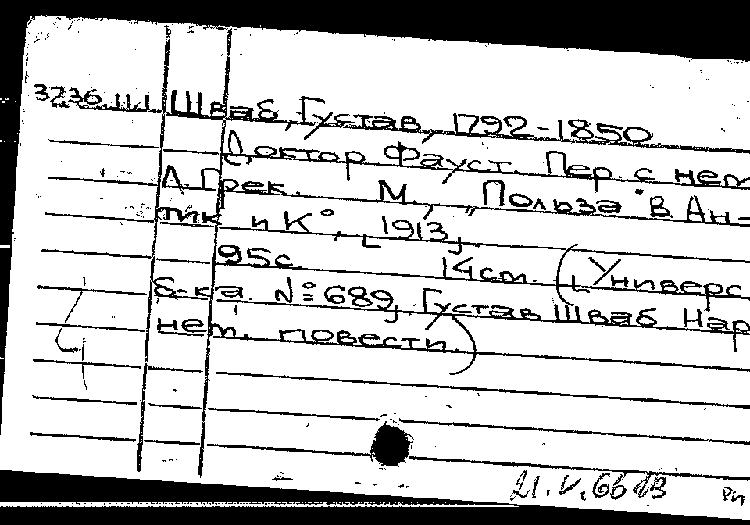 3236.11.1 Шваб, Густав, 1792-1850
Доктор Фауст. Пер с нем
А. Грек. М., „Польза" В Ан-
тик и К°, [1913]
95с. 14см. ([Универс
б-ка. №689, Густав Шваб Нар
нем. повести.)
21.V.66